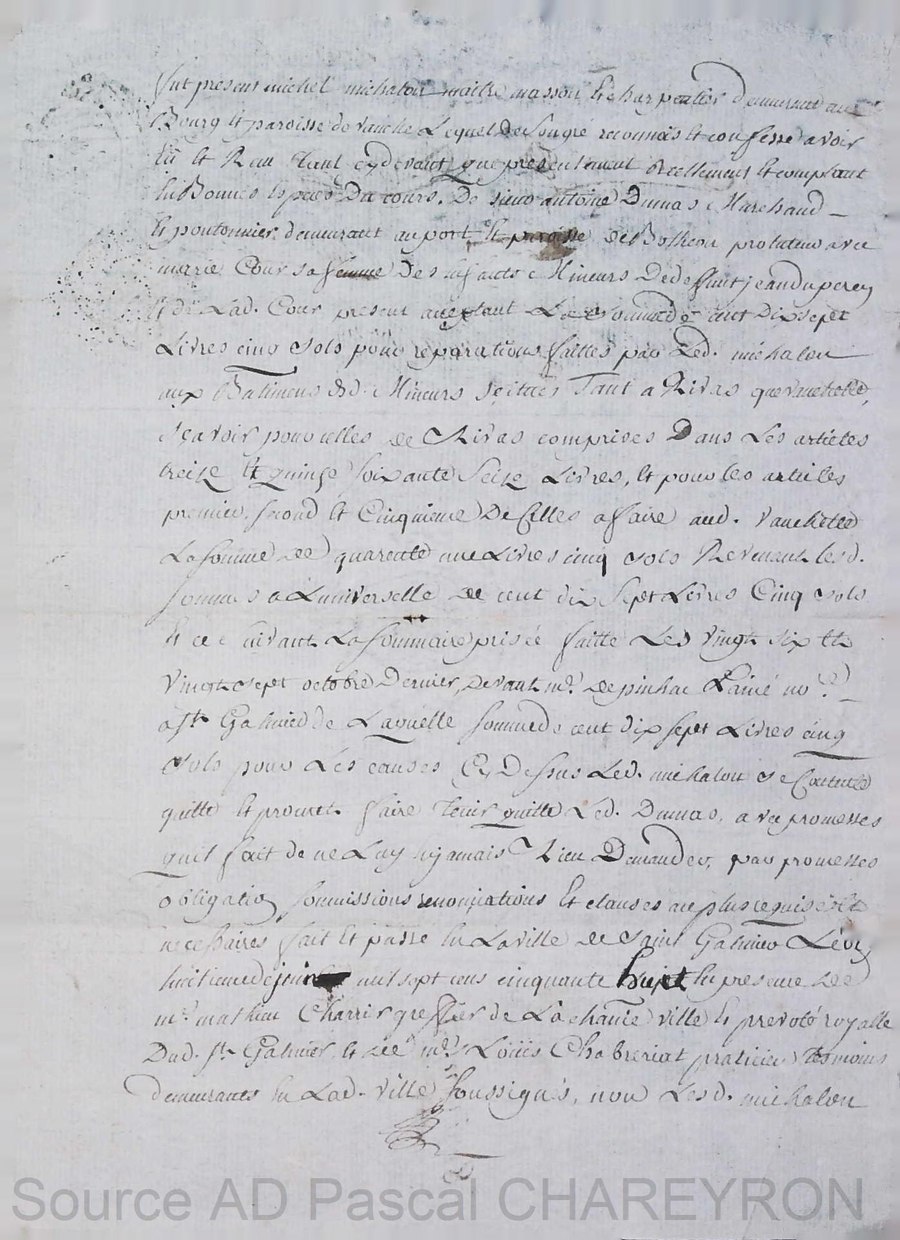 fut present michel michalon maitre masson et charpentier demeurant au
Bourg et paroisse de vauche Lequel de son gré reconnais et confesse avoir
Eü et Reçu tant cydevant que presentement reellement et comptant
En Bonnes Especes Du cours. De sieur antoine Dumas Marchand
et pontonnier demeurant au port et paroisse de Botheon protuteur avec
marie Cour sa femme Des Enfants Mineurs De deffunt jean duperey
et de Lad. Cour present acceptant La somme de cent Dix sept
Livres cinq sols pour reparations faittes par Led. michalon
aux Batimens desd. Mineurs scitués Tant a Rivas que
scavoir pour celles de Rivas comprises Dans Les articles
treize et quinze soixante Seize Livres, et pour les articles
premier, second et Cinquieme De Celles a faire aud.
La somme de quarente une Livres cinq sols Revenant lesd.
sommes a L'universelle de cent dix Sept Livres Cinq sols
Et ce suivant La sommaire prisée faitte Les vingt six et
vingt sept octobre Dernier, Devant me. depinhac L'ainé no.re
a St Galmier de Laquelle somme de cent dix sept Livres cinq
sols pour Les causes Cy Dessus Led. michalon se Contente
quitte et promet faire tenir quitte Led. Dumas, avec promesses
quil fait de ne Luy En jamais Rien Demander, par promesses
obligation soumissions renonciations et clauses au plus requises et
necessaires fait et passé En La ville de Saint Galmier Le
huitieme de juin mil sept cens cinquante huit En presence de
me. mathieu Charris greffier de La ville et prevoté royalle
Dud. St. Galmier et de me. Loüis Chabreriat praticien temoins
demeurants En Lad. ville soussignés, non Led. michalon
Source AD Pascal CHAREYRON